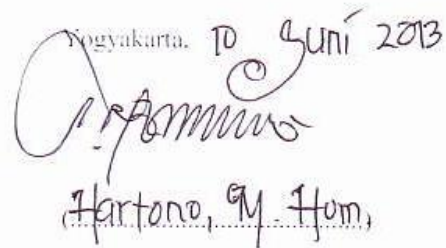 Yogyakarta, 10 Juni 2013
(Hartono, M. Hum)